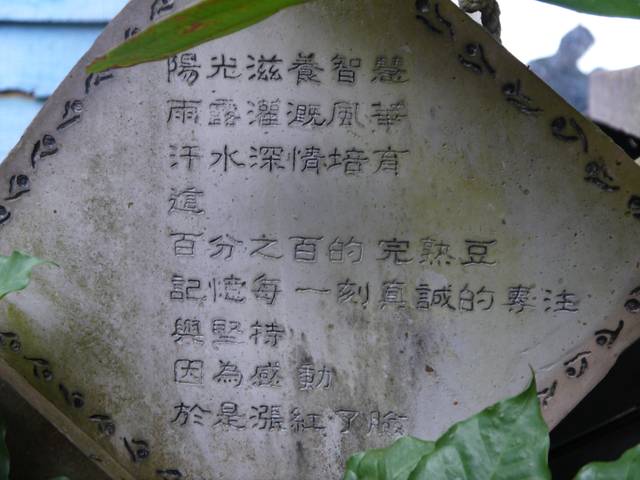 陽光滋養智慧
雨露灌溉風華
汗水深情培育
這
百分之百的完熟豆
記憶每一刻真誠的專注
與堅持
因為感動
於是漲紅了臉